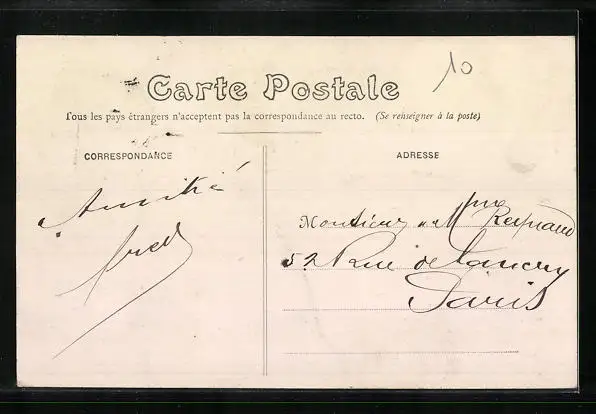 10
Carte Postale
Tous les pays étrangers n'acceptent pas la correspondance au recto. (Se renseigner à la poste)
CORRESPONDANCE
ADRESSE
Amitié
Fred
Monsieur & Mme Reynaud
52 Rue de Lancry
Paris